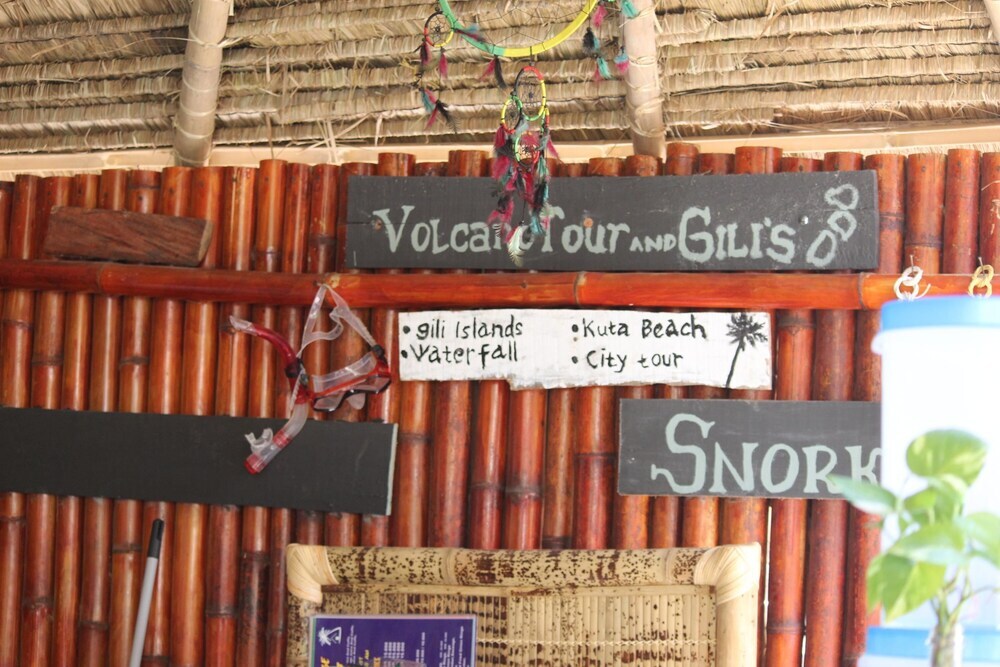 Volcano Tour and Gili's
• gili Islands
• Waterfall
• Kuta Beach
• City tour
Snork